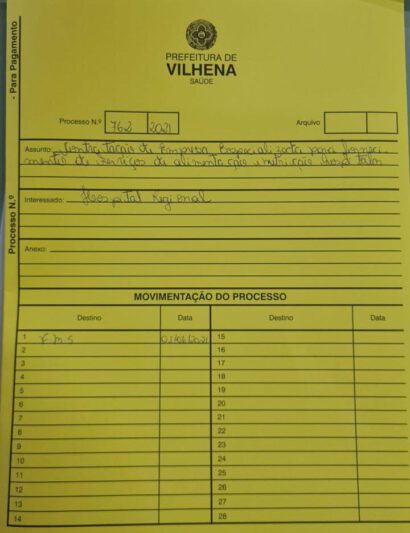 - Para Pagamento
Processo N.º
PREFEITURA DE
VILHENA
SAÚDE
Processo N.º 762 2021
Arquivo
Assunto: Contratação de Empresa Especializada para forneci
mento de serviços de alimentação e nutrição Hospitalar
Interessado: Hospital Regional
Anexo:
MOVIMENTAÇÃO DO PROCESSO
Destino Data Destino Data
1 F M S 01/06/2021 15
2 16
3 17
4 18
5 19
6 20
7 21
8 22
9 23
10 24
11 25
12 26
13 27
14 28